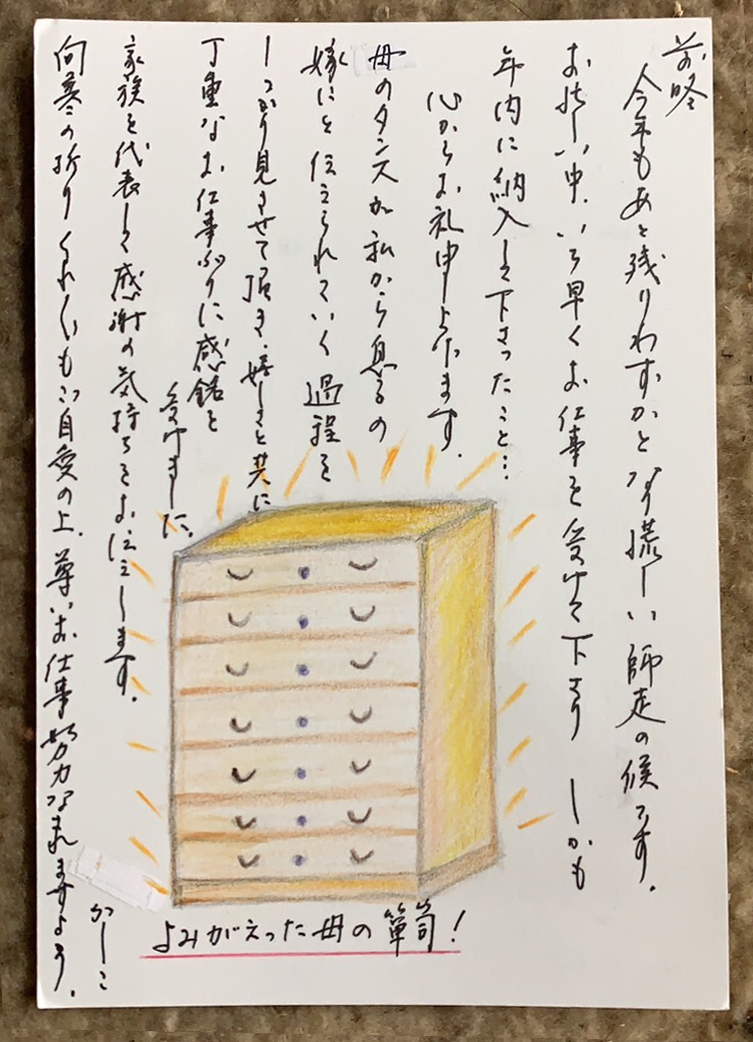 前略
今年もあと残りわずかとなり慌しい師走の候です。
お忙しい中、いち早くお仕事を受けて下さり しかも
年内に納入して下さったこと…
心からお礼申し上げます。
母のタンスが私から息子の
嫁にと伝えられていく過程を
しっかり見させて頂き、嬉しさと共に
丁重なお仕事ぶりに感銘を
受けました。
家族を代表して感謝の気持ちをお伝えします。
向寒の折りくれぐれもご自愛の上、尊いお仕事努力なされますよう。
かしこ
よみがえった母の箪笥!